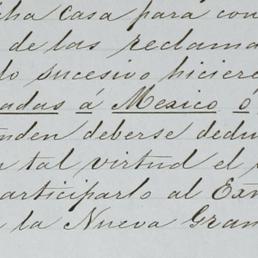 cha casa para con
de las reclama
lo sucesivo hicier
adas á Mexico ó
nden deberse dedu
n tal virtud el
articiparlo al Ex
la Nueva Gran